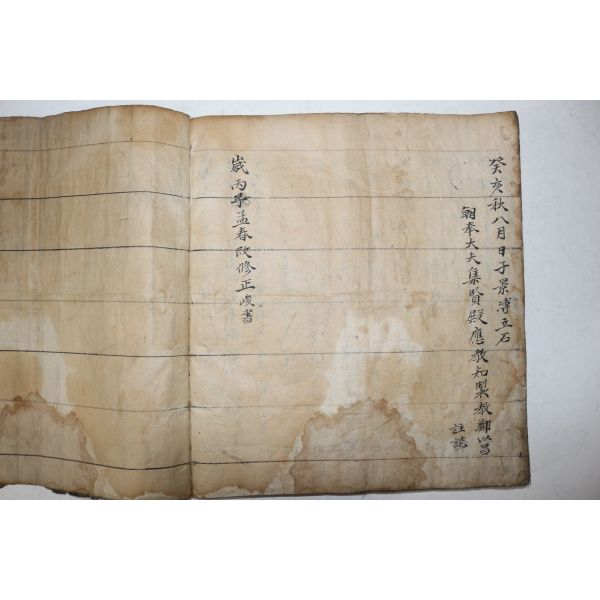 癸亥秋八月日子景溥立石
朝奉大夫集賢殿應教知製教鄭昌
註誌
歲丙子孟春改修正峻書